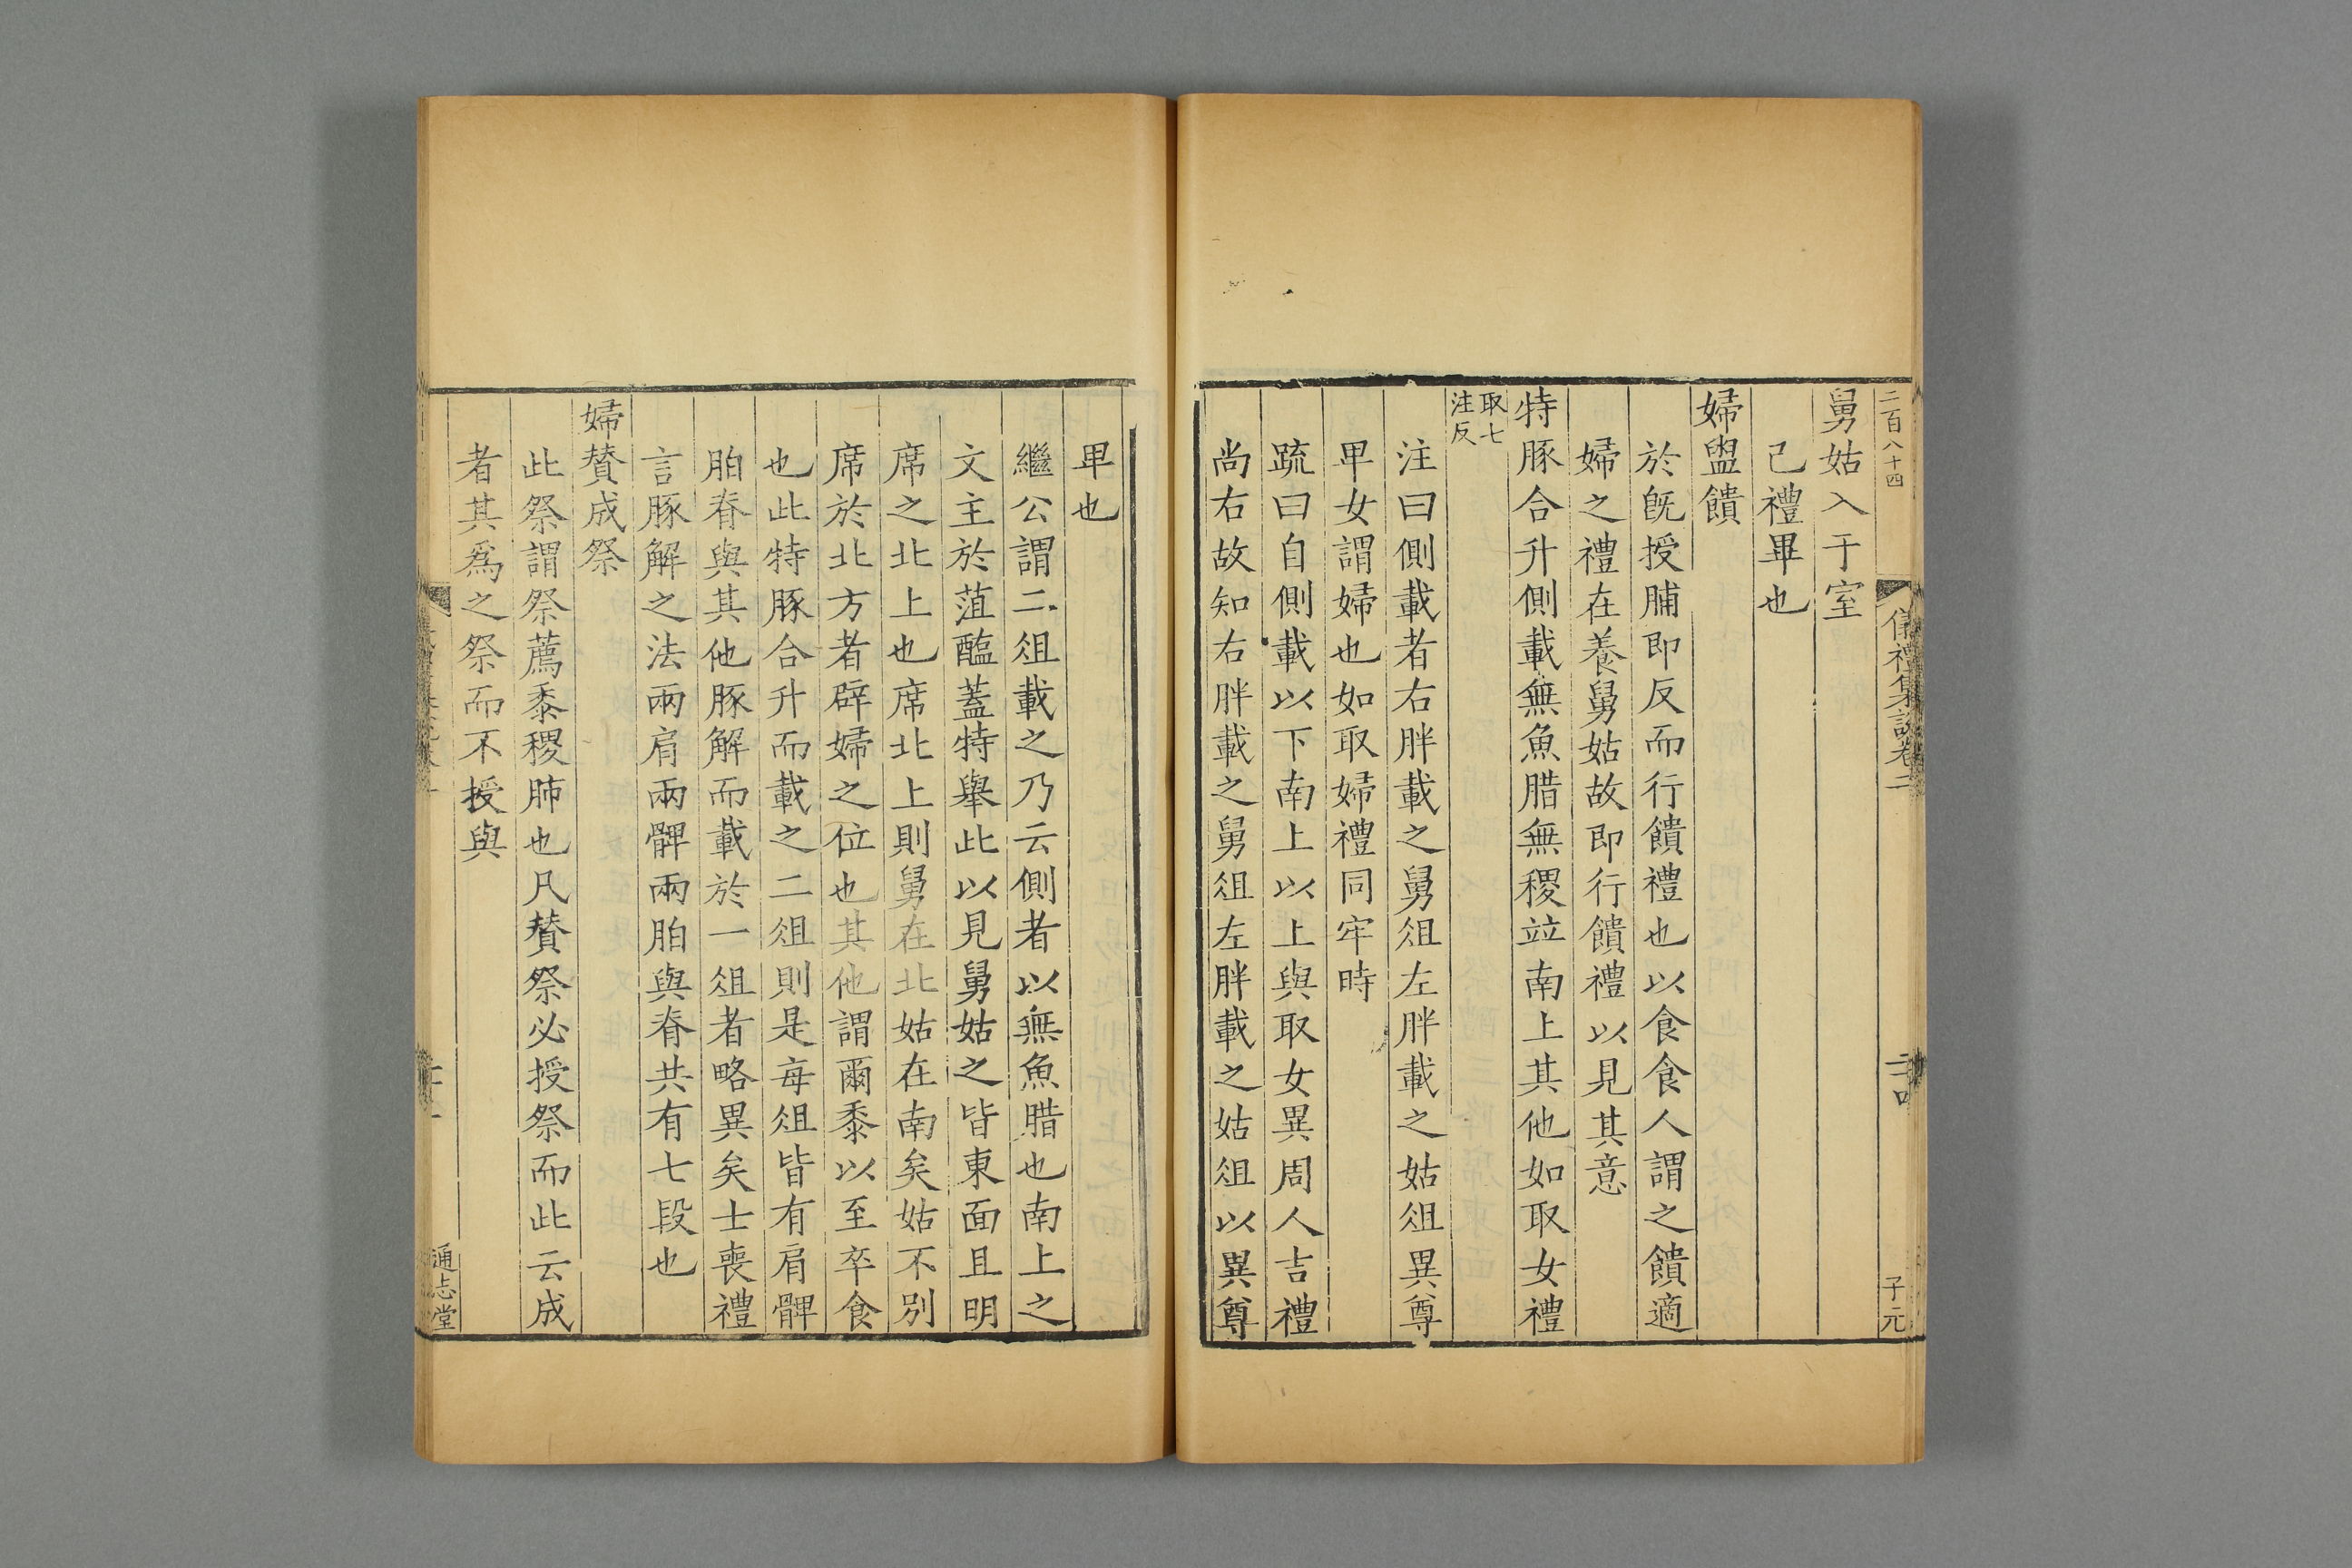 二百八十四
儀禮集說卷二
子元
舅姑入于室
已禮畢也
婦盥饋
於旣授脯即反而行饋禮也以食食人謂之饋適
婦之禮在養舅姑故即行饋禮以見其意
特豚合升側載無魚腊無稷竝南上其他如取女禮
取七
注反
注曰側載者右胖載之舅俎左胖載之姑俎異尊
卑女謂婦也如取婦禮同牢時
疏曰自側載以下南上以上與取女異周人吉禮
尚右故知右胖載之舅俎左胖載之姑俎以異尊
卑也
繼公謂二俎載之乃云側者以無魚腊也南上之
文主於菹醢蓋特舉此以見舅姑之皆東面且明
席之北上也席北上則舅在北姑在南矣姑不別
席於北方者辟婦之位也其他謂爾黍以至卒食
也此特豚合升而載之二俎則是每俎皆有肩髀
胉脊與其他豚解而載於一俎者略異矣士喪禮
言豚解之法兩肩兩髀兩胉與脊共有七段也
婦贊成祭
此祭謂祭薦黍稷肺也凡贊祭必授祭而此云成
者其爲之祭而不授與
通志堂